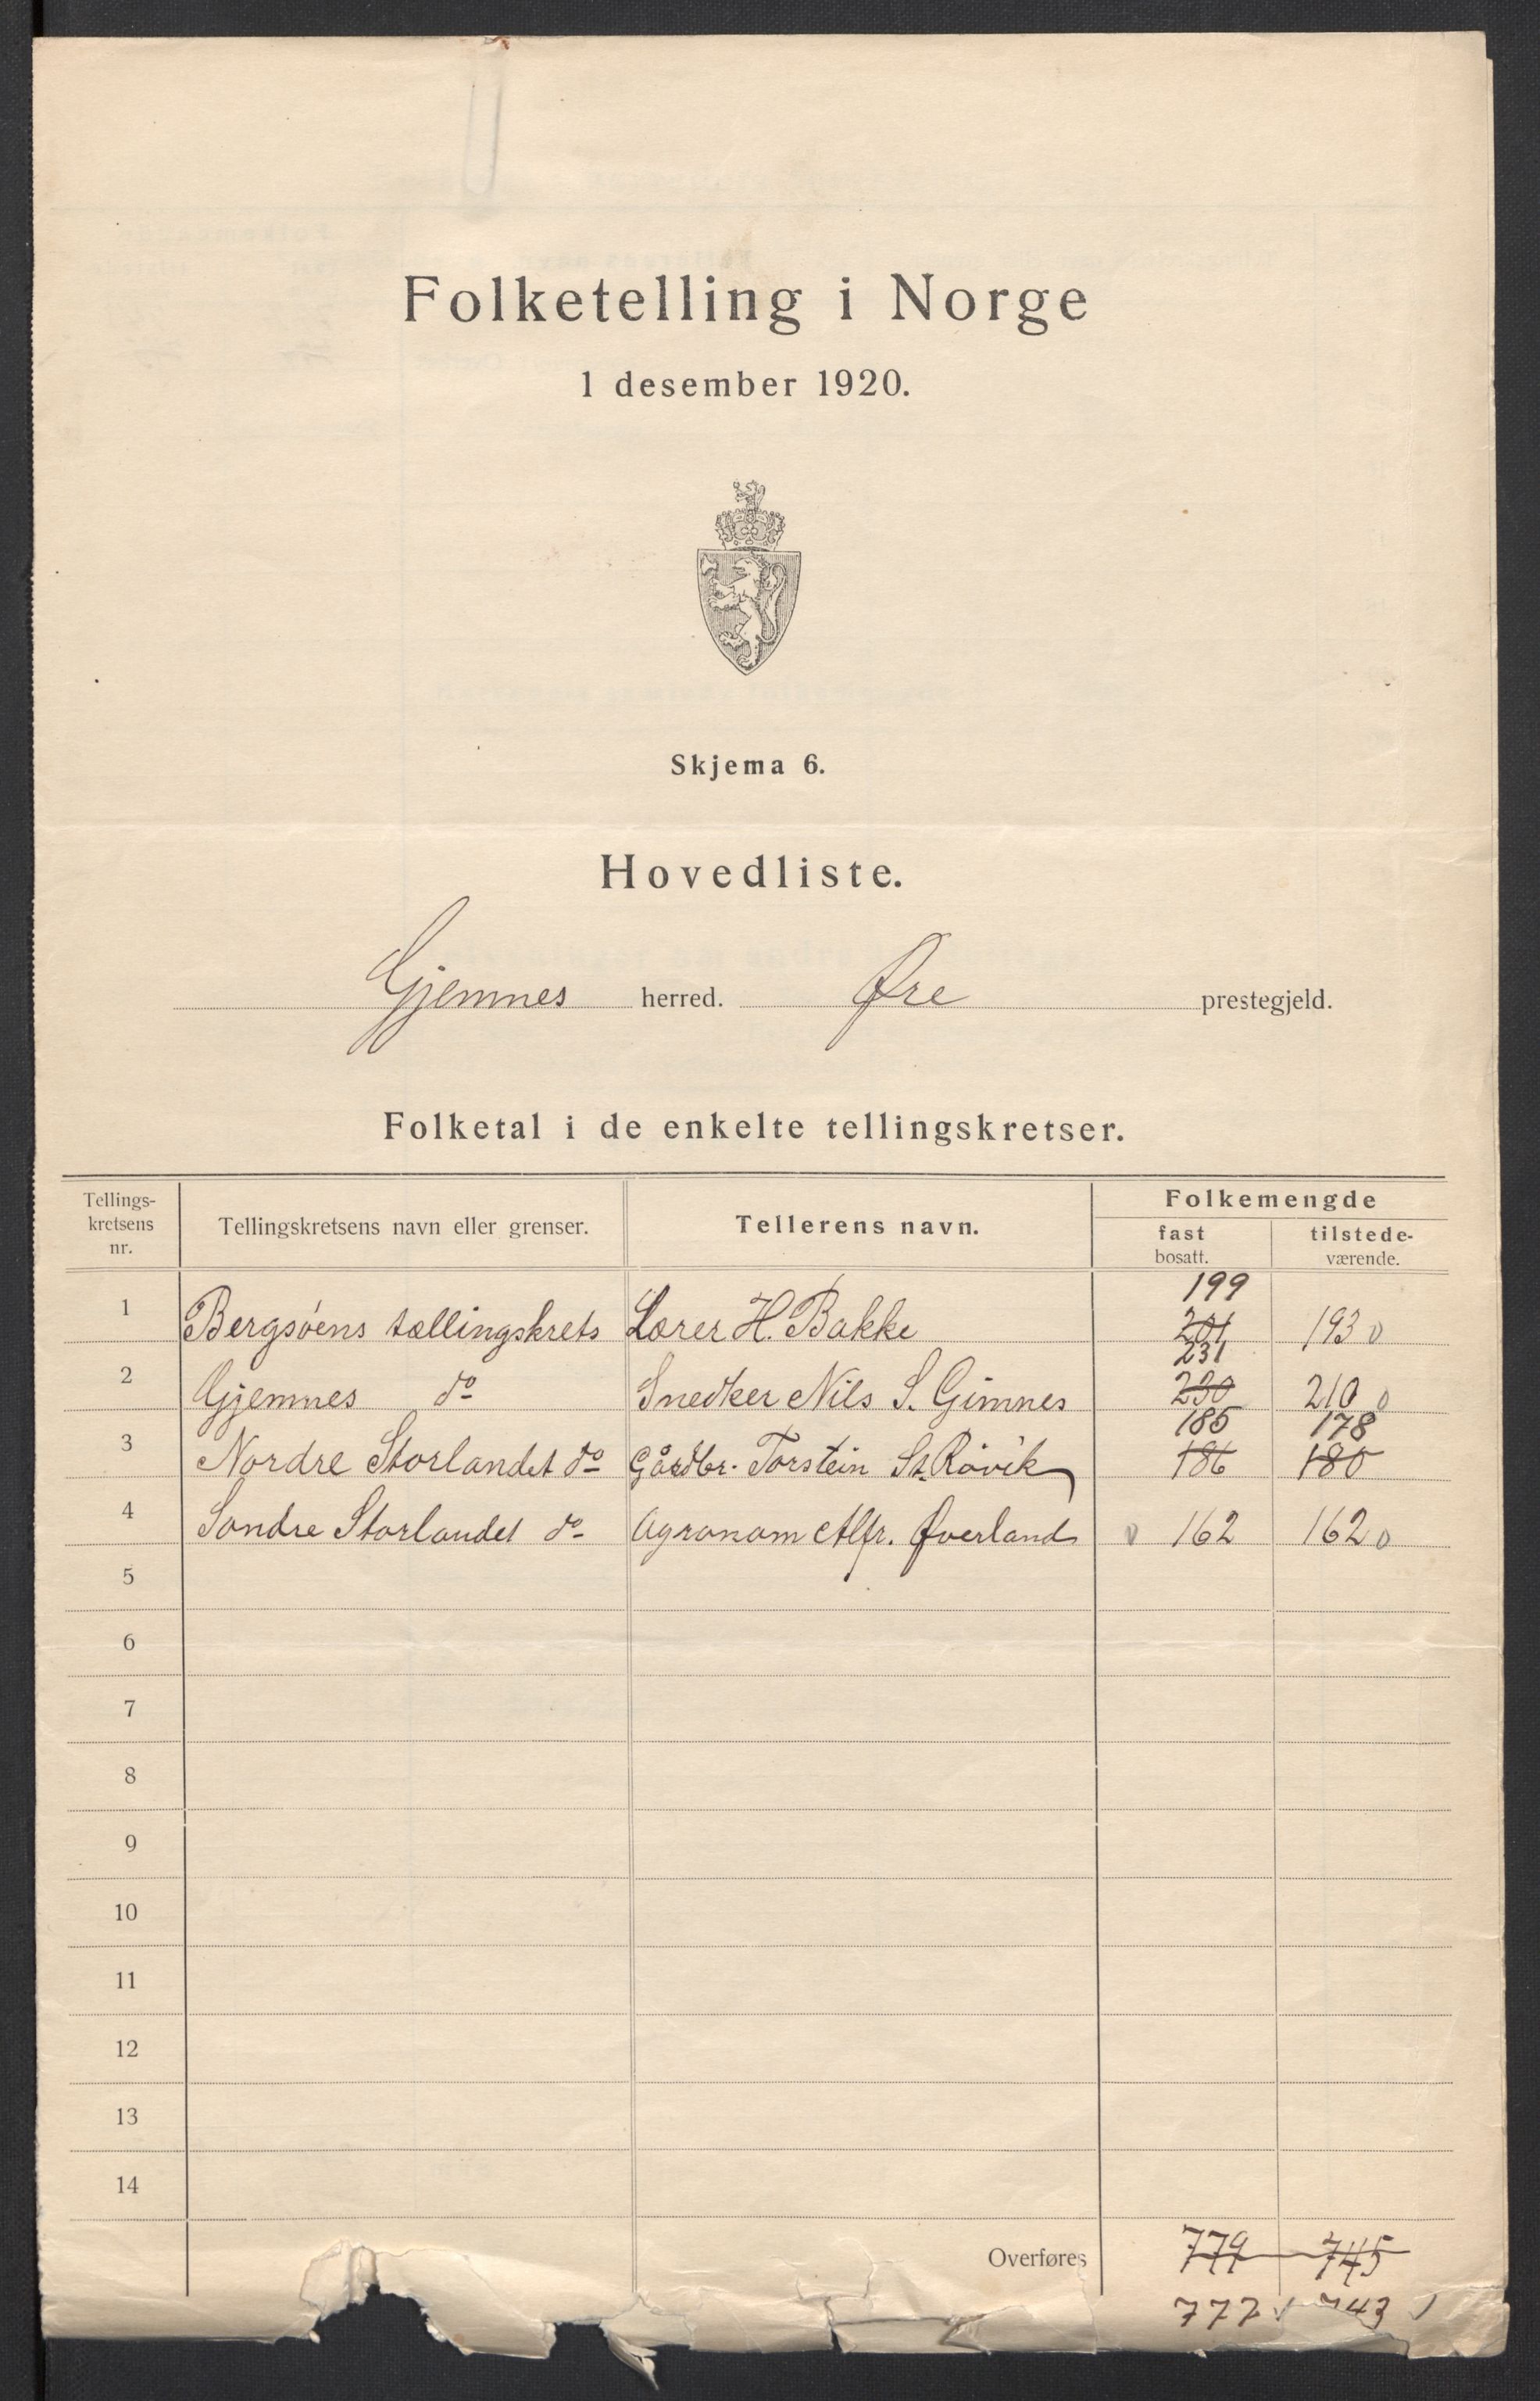 Folketelling i Norge
1 desember 1920.
Skjema 6.
Hovedliste.
Gjemnes herred. Øre prestegjeld.
Folketal i de enkelte tellingskretser.
Tellings-
kretsens
nr.
Tellingskretsens navn eller grenser.
Tellerens navn.
Folkemengde
fast
bosatt.
tilstede-
værende.
199
1 Bergsöens tællingskrets Lærer H. Bakke 201 193 0
231
2 Gjemnes do Snedker Nils S. Gimnes 230 210 0
185 178
3 Nordre Storlandet do Gårdbr. Torstein St. Rövik 186 180
4 Söndre Storlandet do Agronom Alfr. Øverland v 162 162 0
5
6
7
8
9
10
11
12
13
14
Overføres 779 745
777 v 743 v